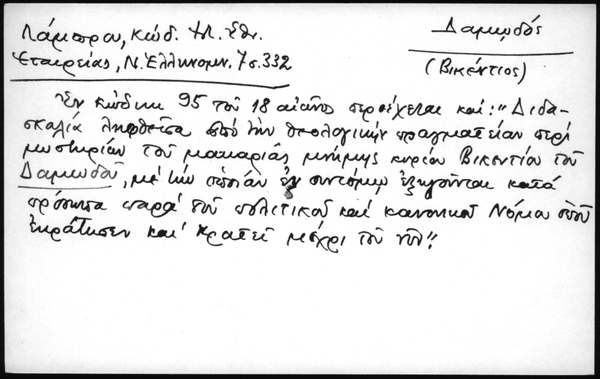 Λάμπρου, Κώδ. Ἱστ. Ἐθν.
Ἑταιρείας, Ν. Ἑλληνομν. 7 σ. 332
Δαμωδός
(Βικέντιος)
Ἐν κώδικι 95 τοῦ 18 αἰῶνος περιέχεται καί: "Διδα-
σκαλία ληφθεῖσα ἀπό τήν θεολογικήν πραγματείαν περί
μυστηρίων τοῦ μακαρίας μνήμης κυρίου Βικεντίου τοῦ
Δαμωδοῦ, μέ τήν ὁποίαν ἐν συντόμῳ ἐξηγοῦνται κατά
πρόσωπα παρά τοῦ πολιτικοῦ καί κανονικοῦ Νόμου ὁποῦ
ἐκράτησεν καί κρατεῖ μέχρι τοῦ νῦν".